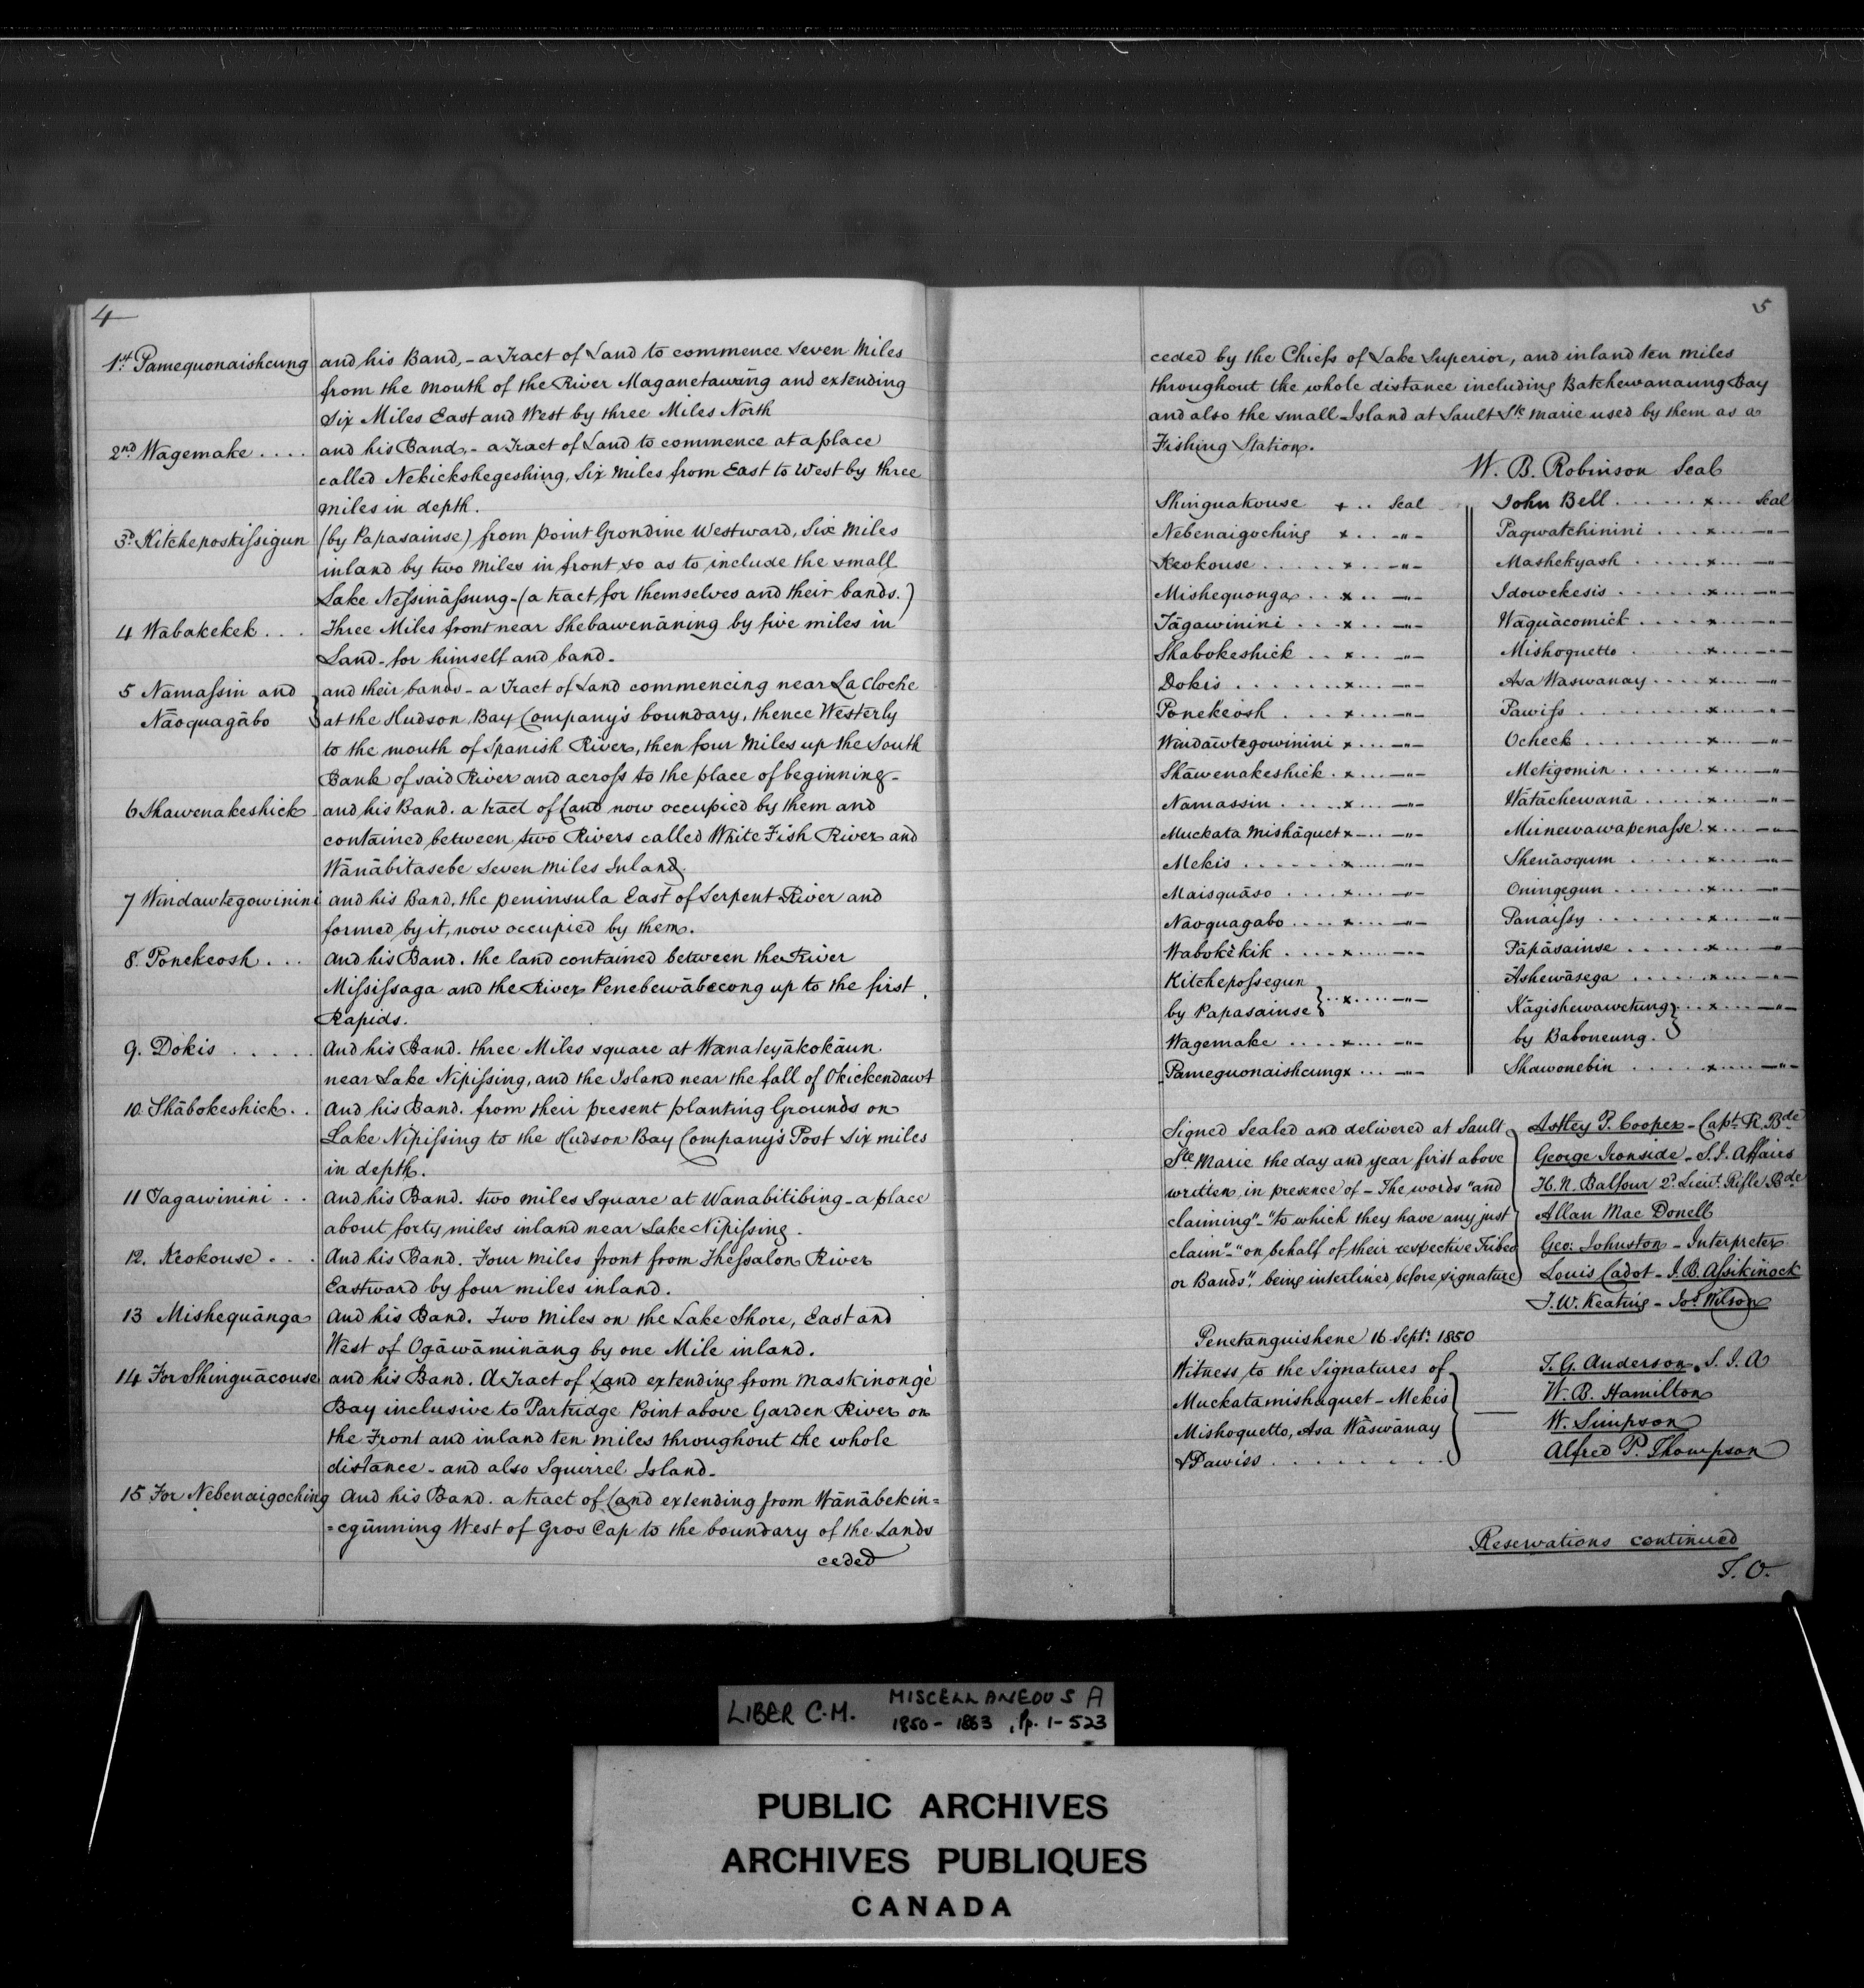 4
1st Pamequonaishcung and his Band, - a Tract of Land to commence Seven Miles
from the mouth of the River Maganetawāng and extending
Six Miles East and West by three Miles North
2nd Wagemake .... and his Band, - a Tract of Land to commence at a place
called Nekickshegeshing, Six Miles from East to West by three
miles in depth.
3d. Kitcheposkissigun (by Papasainse) from point Grondine Westward, Six Miles
inland by two Miles in front so as to include the small
Lake Nessināssung - (a tract for themselves and their bands.)
4 Wabakekek ... Three Miles front near Shebawenāning by five miles in
Land - for himself and band -
5 Namassin and } and their bands - a Tract of Land commencing near La Cloche
Nāoquagābo } at the Hudson Bay Company's boundary, thence Westerly
to the mouth of Spanish River, then four Miles up the South
Bank of said River and across to the place of beginning -
6 Shawenakeshick and his Band. a tract of Land now occupied by them and
contained between two Rivers called White Fish River and
Wānābitasebe Seven Miles Inland.
7 Windawtegowinini and his Band, the peninsula East of Serpent River and
formed by it, now occupied by them.
8. Ponekeosh ... And his Band. the land contained between the River
Mississaga and the River Penebewābecong up to the first
Rapids.
9. Dokis ..... And his Band. three Miles square at Wanateyākokāun
near Lake Nipissing, and the Island near the fall of Okickendawt
10. Shābokeshick .. And his Band. from their present planting Grounds on
Lake Nipissing to the Hudson Bay Company's Post Six miles
in depth.
11 Tagawinini .. And his Band. two miles Square at Wanabitibing - a place
about forty miles inland near Lake Nipissing.
12. Keokouse ... And his Band. Four miles front from Thessalon River
Eastward by four miles inland.
13 Mishequānga And his Band. Two Miles on the Lake Shore, East and
West of Ogāwāmināng by one Mile inland.
14 For Shinguācouse and his Band. A Tract of Land extending from Maskinongè
Bay inclusive to Partridge Point above Garden River on
the Front and inland ten miles throughout the whole
distance - and also Squirrel Island -
15 For Nebenaigoching And his Band. a tract of Land extending from Wānābekin=
=egūnning West of Gros Cap to the boundary of the Lands
ceded
5
ceded by the Chiefs of Lake Superior, and inland ten miles
throughout the whole distance including Batchewanaung Bay
and also the small Island at Sault Ste Marie used by them as a
Fishing Station.
W. B. Robinson Seal
Shinguakouse x .. Seal
Nebenaigoching x .. -"-
Keokouse ..... x .. -"-
Mishequonga .. x .. -"-
Tāgawinini ... x .. -"-
Shabokeshick .. x ... -"-
Dokis ....... x ... -"-
Ponekeosh ... x .... -"-
Windāwtegowinini x ... -"-
Shāwenakeshick . x .... -"-
Namassin ..... x .... -"-
Muckata Mishāquet x -... -"-
Mekis ...... x ..... -"-
Maisquāso .... x .... -"-
Naoquagabo .... x .... -"-
Wabokèkik .... x ..... -"-
Kitchepossegun }
by Papasainse } .. x ..... -"-
Wagemake .... x .... -"-
Pamequonaishcung x ... -"-
John Bell ...... x ... Seal
Paqwatchinini ... x .... -"-
Mashekyash ..... x .... -"-
Idowekesis ...... x .... -"-
Waquācomick .... x .... -"-
Mishoquetto ..... x .... -"-
Asa Waswanay .... x .... -"-
Pawiss ........ x .... -"-
Ocheek ........ x .... -"-
Metigomin ...... x .... -"-
Wātāchewanā ..... x .... -"-
Miinewawapenasse . x .... -"-
Shenāoqum ..... x .... -"-
Oningegun ...... x .... -"-
Panaissy ....... x .... -"-
Pāpāsainse ..... x .... -"-
Ashewāsega ..... x .... -"-
Kāgishewawetung } ... x .... -"-
by Baboneung. }
Shawonebin ..... x .... -"-
Signed Sealed and delivered at Sault
Ste Marie the day and year first above
written in presence of - The words "and
claiming" - "to which they have any just
claim" - "on behalf of their respective Tribes
or Bands", being interlined before signature
Astley P. Cooper - Capt. R. Bde
George Ironside - S.I. Affairs
H. N. Balfour 2d. Lieut. Rifle Bde
Allan Mac Donell
Geo: Johnston - Interpreter
Louis Cadot - J. B. Assikinock
T. W. Keating - Jos Wilson
Penetanguishene 16 Sept. 1850
Witness to the Signatures of
Muckatamishaquet - Mekis
Mishoquetto, Asa Wāswānay
& Pawiss .........
T. G. Anderson, S. I. A
W. B. Hamilton
W. Simpson
Alfred P. Thompson
Reservations continued
T. O.
LIBER C.M. MISCELLANEOUS A
1850 - 1863, Pp. 1-523
PUBLIC ARCHIVES
ARCHIVES PUBLIQUES
CANADA